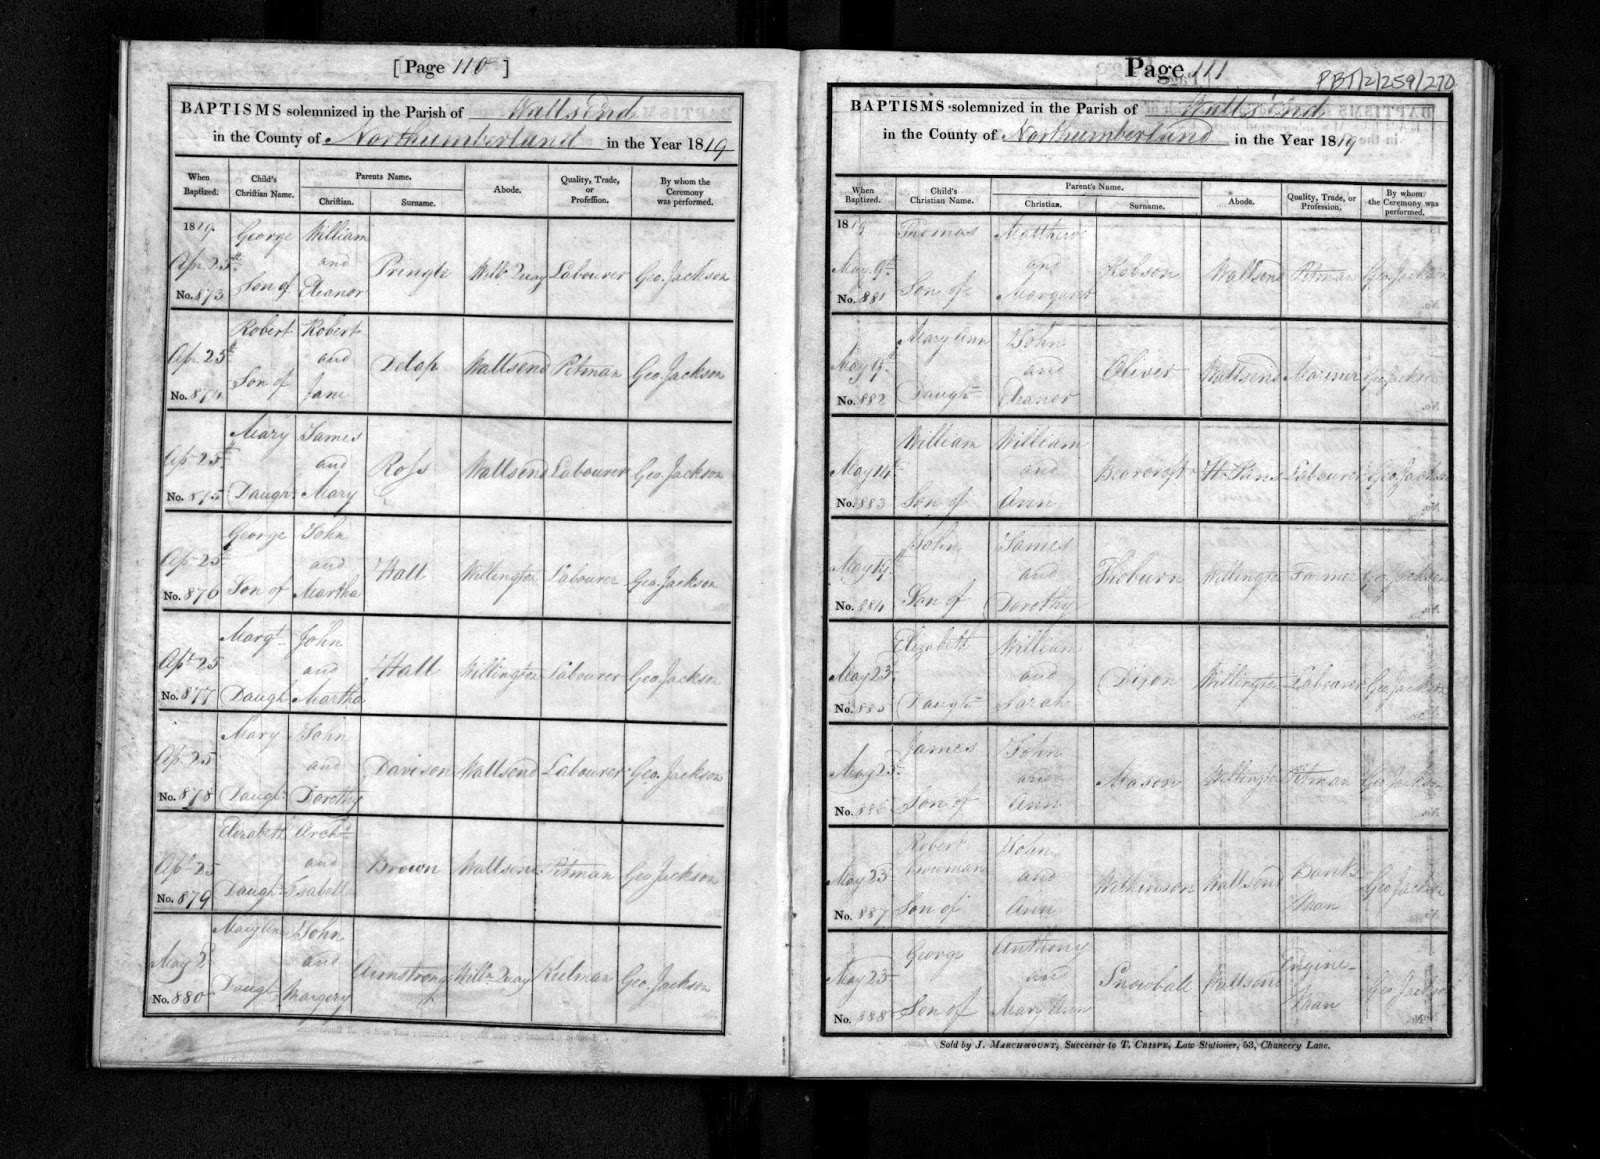 [ Page 110 ]
BAPTISMS solemnized in the Parish of Wallsend
in the County of Northumberland in the Year 1819
When Baptized. Child's Christian Name. Parents Name. Christian. Surname. Abode. Quality, Trade, or Profession. By whom the Ceremony was performed.
1819. Apr 25th No. 873 George Son of William and Eleanor Pringle Willn Quay Labourer Geo. Jackson
Apr 25th No. 874 Robert Son of Robert and Jane Delap Wallsend Pitman Geo. Jackson
Apr 25th No. 875 Mary Daughr James and Mary Ross Wallsend Labourer Geo. Jackson
Apr 25 No. 876 George Son of John and Martha Hall Willington Labourer Geo. Jackson
Apr 25 No. 877 Margt Daugh John and Martha Hall Willington Labourer Geo. Jackson
Apr 25 No. 878 Mary Daughr John and Dorothy Davison Wallsend Labourer Geo. Jackson
Apr 25 No. 879 Elizabeth Daughr Archd and Isabella Brown Wallsend Pitman Geo Jackson
May 2 No. 880 Mary Ann Daughr John and Margery Armstrong Willn Quay Keelman Geo. Jackson
Page 111
PBT/2/259/270
BAPTISMS solemnized in the Parish of Wallsend
in the County of Northumberland in the Year 1819
When Baptized. Child's Christian Name. Parent's Name. Christian. Surname. Abode. Quality, Trade, or Profession. By whom the Ceremony was performed.
1819 May 9th No. 881 Thomas Son of Matthew and Margaret Wallsend Pitman Geo. Jackson
May No. 882 Mary Ann Daughr John and Eleanor Oliver Wallsend Mariner Geo Jackson
May 14th No. 883 William Son of William and Ann Bearcroft Labourer Geo. Jackson
May No. 884 John Son of James and Dorothy Thoburn Willington Farmer Geo Jackson
May 23 No. 885 Elizabeth Daughr William and Sarah Dixon Willington Labourer Geo Jackson
May 23 No. 886 James Son of John and Ann Mason Willington Pitman Geo Jackson
May 23 No. 887 Robert Son of John and Ann Watkinson Wallsend Banks Man Geo Jackson
May 23 No. 888 George Son of Anthony and Mary Ann Snowball Wallsend Engine-Man Geo Jackson
Sold by J. Marchmount, Successor to T. Crispe, Law Stationer, 53, Chancery Lane.